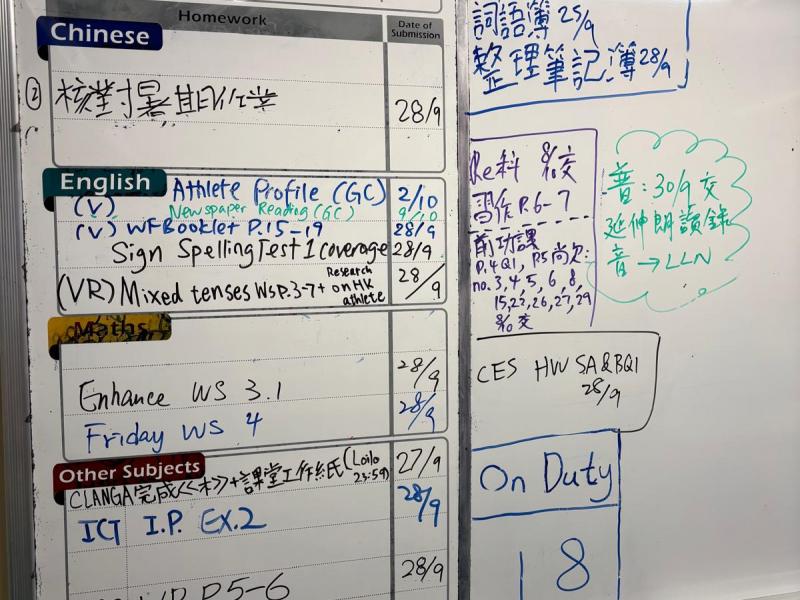 Homework
Date of Submission
Chinese
② 核對暑期作業 28/9
English
(V) Athlete Profile (GC) 2/10
Newspaper Reading (GC) 9/10
(V) WF Booklet P.15-19 28/9
Sign Spelling Test 1 coverage 28/9
(VR) Mixed tenses WS P.3-7 + Research on HK athlete 28/9
Maths
Enhance WS 3.1 28/9
Friday WS 4 28/9
Other Subjects
CLANGA 完成<<木>>+課堂工作紙 (Loilo 23:59) 27/9
ICT I.P. EX.2 28/9
P.5-6 28/9
詞語簿 25/9
整理筆記簿 28/9
Re科 交
習作 P.6-7
前功課
P.4Q1, P.5尚欠:
no.3,4,5,6,8,
15,22,26,27,29
交
普:30/9交
延伸朗讀錄
音→LLN
CES HW SA&BQ1
28/9
On Duty
18